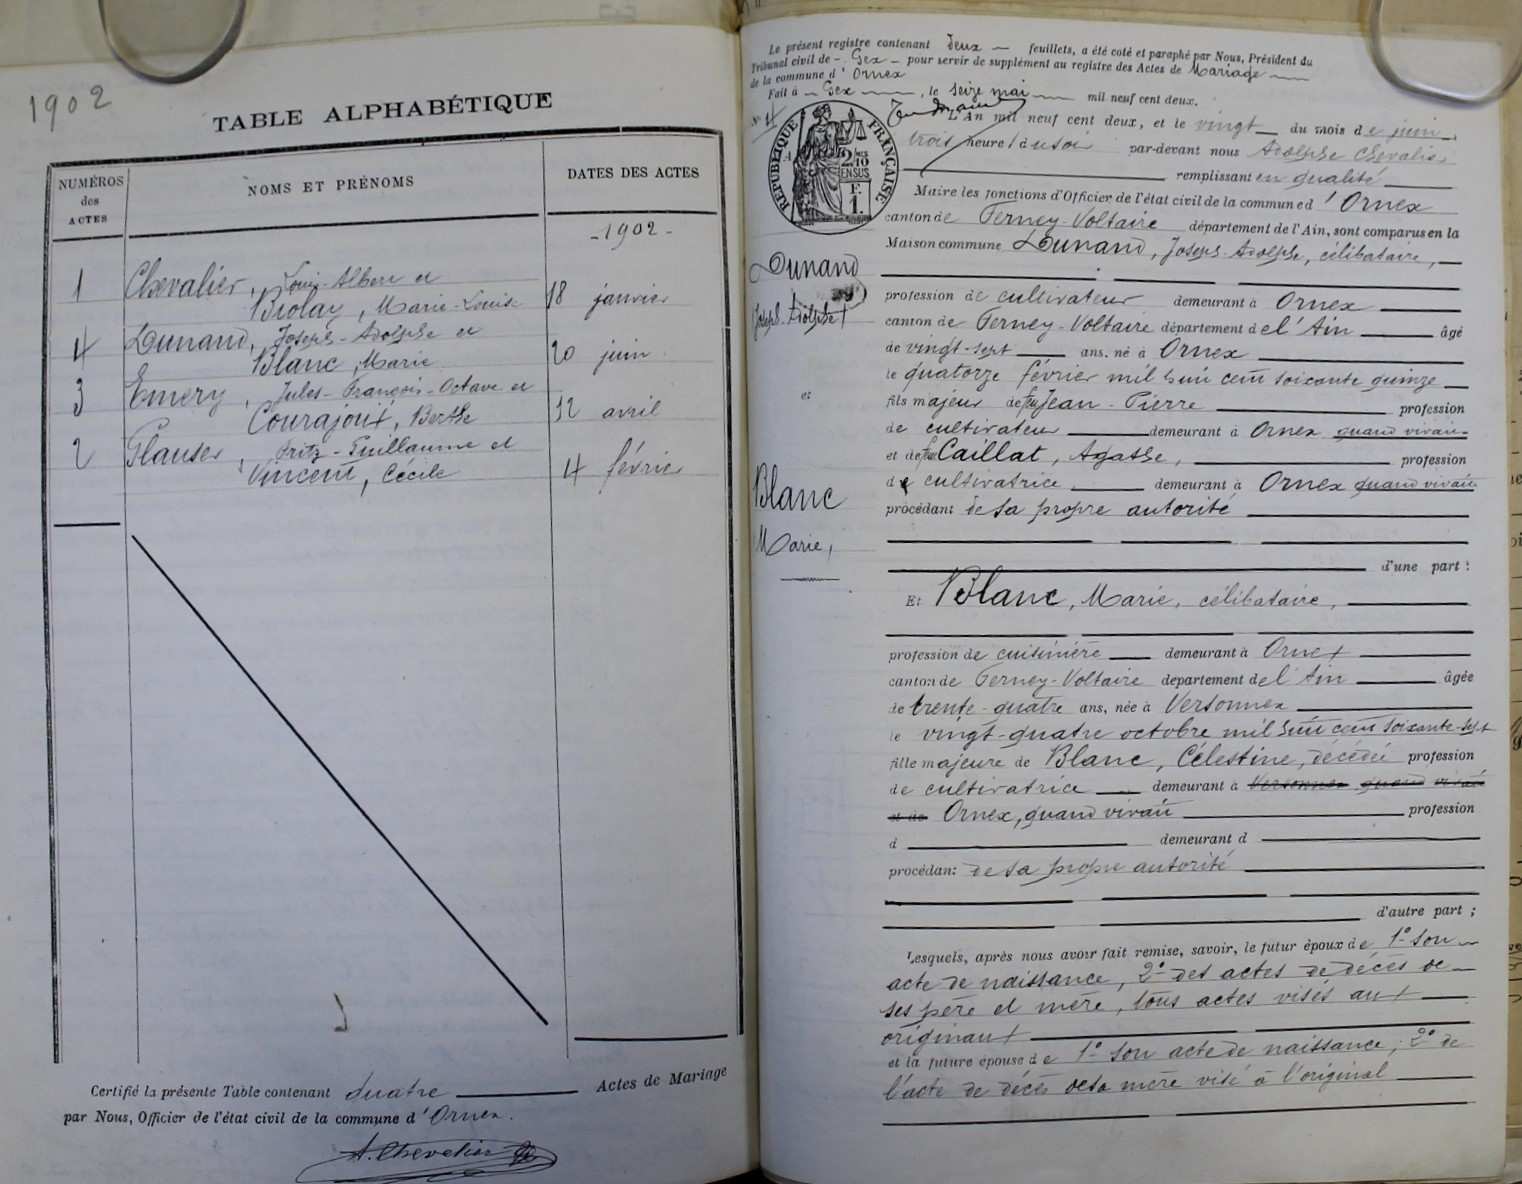 1902
TABLE ALPHABÉTIQUE
NUMÉROS
des
ACTES
NOMS ET PRÉNOMS
DATES DES ACTES
-1902-
1 Chevalier, Louis-Albert et
Biolay, Marie-Louise 18 janvier
4 Dunand, Joseph-Adolphe et
Blanc, Marie 20 juin
3 Emery, Jules-François-Octave et
Courajoux, Berthe 12 avril
2 Glauser, Fritz-Guillaume et
Vincent, Cécile 4 février
Certifié la présente Table contenant quatre Actes de Mariage
par Nous, Officier de l'état civil de la commune d'Ornex.
A. Chevalier
Le présent registre contenant deux feuillets, a été coté et paraphé par Nous, Président du
Tribunal civil de Gex pour servir de supplément au registre des Actes de Mariage
de la commune d'Ornex
Fait à Gex, le seize mai mil neuf cent deux.
N° 4
RÉPUBLIQUE FRANÇAISE
2/10
EN SUS
F.
1.
L'An mil neuf cent deux, et le vingt du mois de juin,
trois heures du soir par-devant nous Adolphe Chevalier
remplissant en qualité
Maire les fonctions d'Officier de l'état civil de la commune d'Ornex
canton de Ferney-Voltaire département de l'Ain, sont comparus en la
Maison commune Dunand, Joseph-Adolphe, célibataire,
Dunand
Joseph-Adolphe
et
Blanc
Marie,
profession de cultivateur demeurant à Ornex
canton de Ferney-Voltaire département de l'Ain âgé
de vingt-sept ans, né à Ornex
le quatorze février mil huit cent soixante quinze
fils majeur de feu Jean-Pierre profession
de cultivateur demeurant à Ornex quand vivait
et de feu Caillat, Agathe, profession
de cultivatrice demeurant à Ornex quand vivait
procédant de sa propre autorité
d'une part :
Et Blanc, Marie, célibataire,
profession de cuisinière demeurant à Ornex
canton de Ferney-Voltaire département de l'Ain âgée
de trente-quatre ans, née à Versonnex
le vingt-quatre octobre mil huit cent soixante-sept
fille majeure de Blanc, Célestine, décédée profession
de cultivatrice demeurant à Versonnex quand vivait
et de Ornex, quand vivait profession
d demeurant d
procédant de sa propre autorité
d'autre part ;
Lesquels, après nous avoir fait remise, savoir, le futur époux de 1° son
acte de naissance, 2° des actes de décès de
ses père et mère, tous actes visés aux
originaux
et la future épouse de 1° son acte de naissance, 2° de
l'acte de décès de sa mère visé à l'original